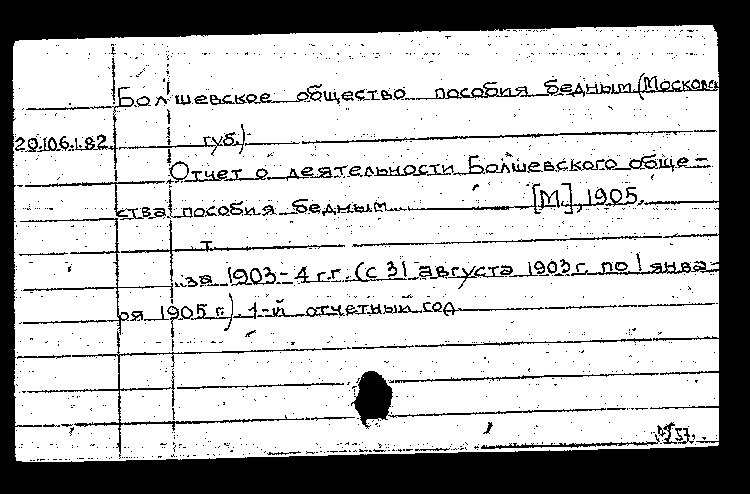 Болшевское общество пособия бедным (Москов
20.106.1.82. губ.)
Отчет о деятельности Болшевского обще-
ства пособия бедным. [М.], 1905.
т.
за 1903-4 г.г. (с 31 августа 1903 г. по 1 янва-
ря 1905 г.). 1-й отчетный год.